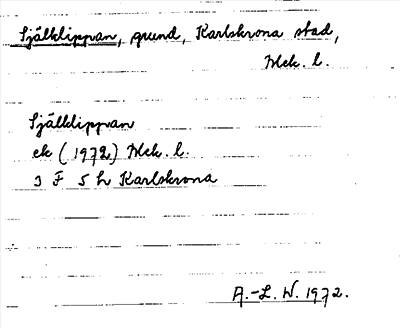 Själklippan, grund, Karlskrona stad,
Mek. l.
Själklippan
ek (1972) Mek. l.
3 F 5 h Karlskrona
A.-L. W. 1972.